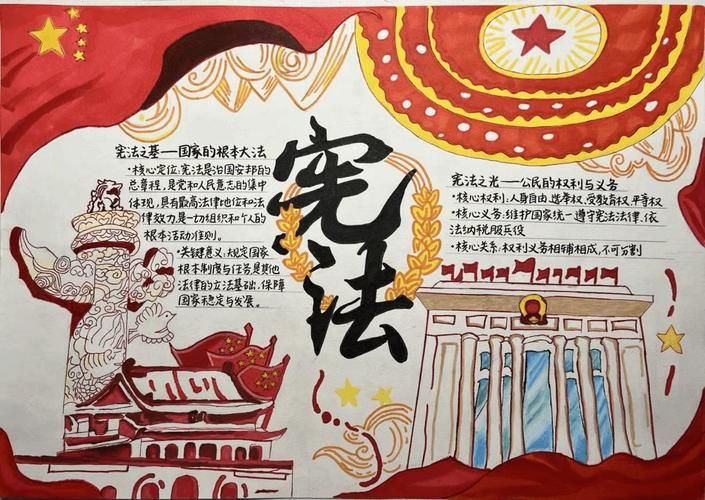 宪法之基——国家的根本大法
·核心定位:宪法是治国安邦的
总章程,是党和人民意志的集中
体现,具有最高法律地位和法
律效力是一切组织和个人的
根本活动准则。
·关键意义:规定国家
根本制度与任务是其他
法律的立法基础,保障
国家稳定与发展。
宪法
宪法之光——公民的权利与义务
·核心权利:人身自由、选举权、受教育权、平等权
·核心义务:维护国家统一遵守宪法法律、依
法纳税服兵役
·核心关系:权利义务相辅相成,不可分割